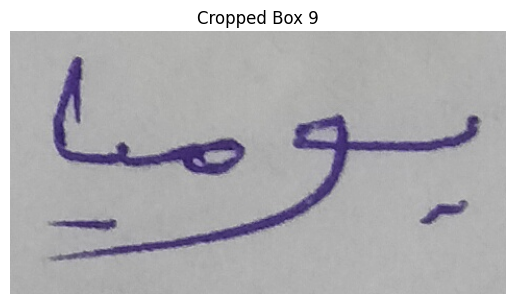 Cropped Box 9
يوميا